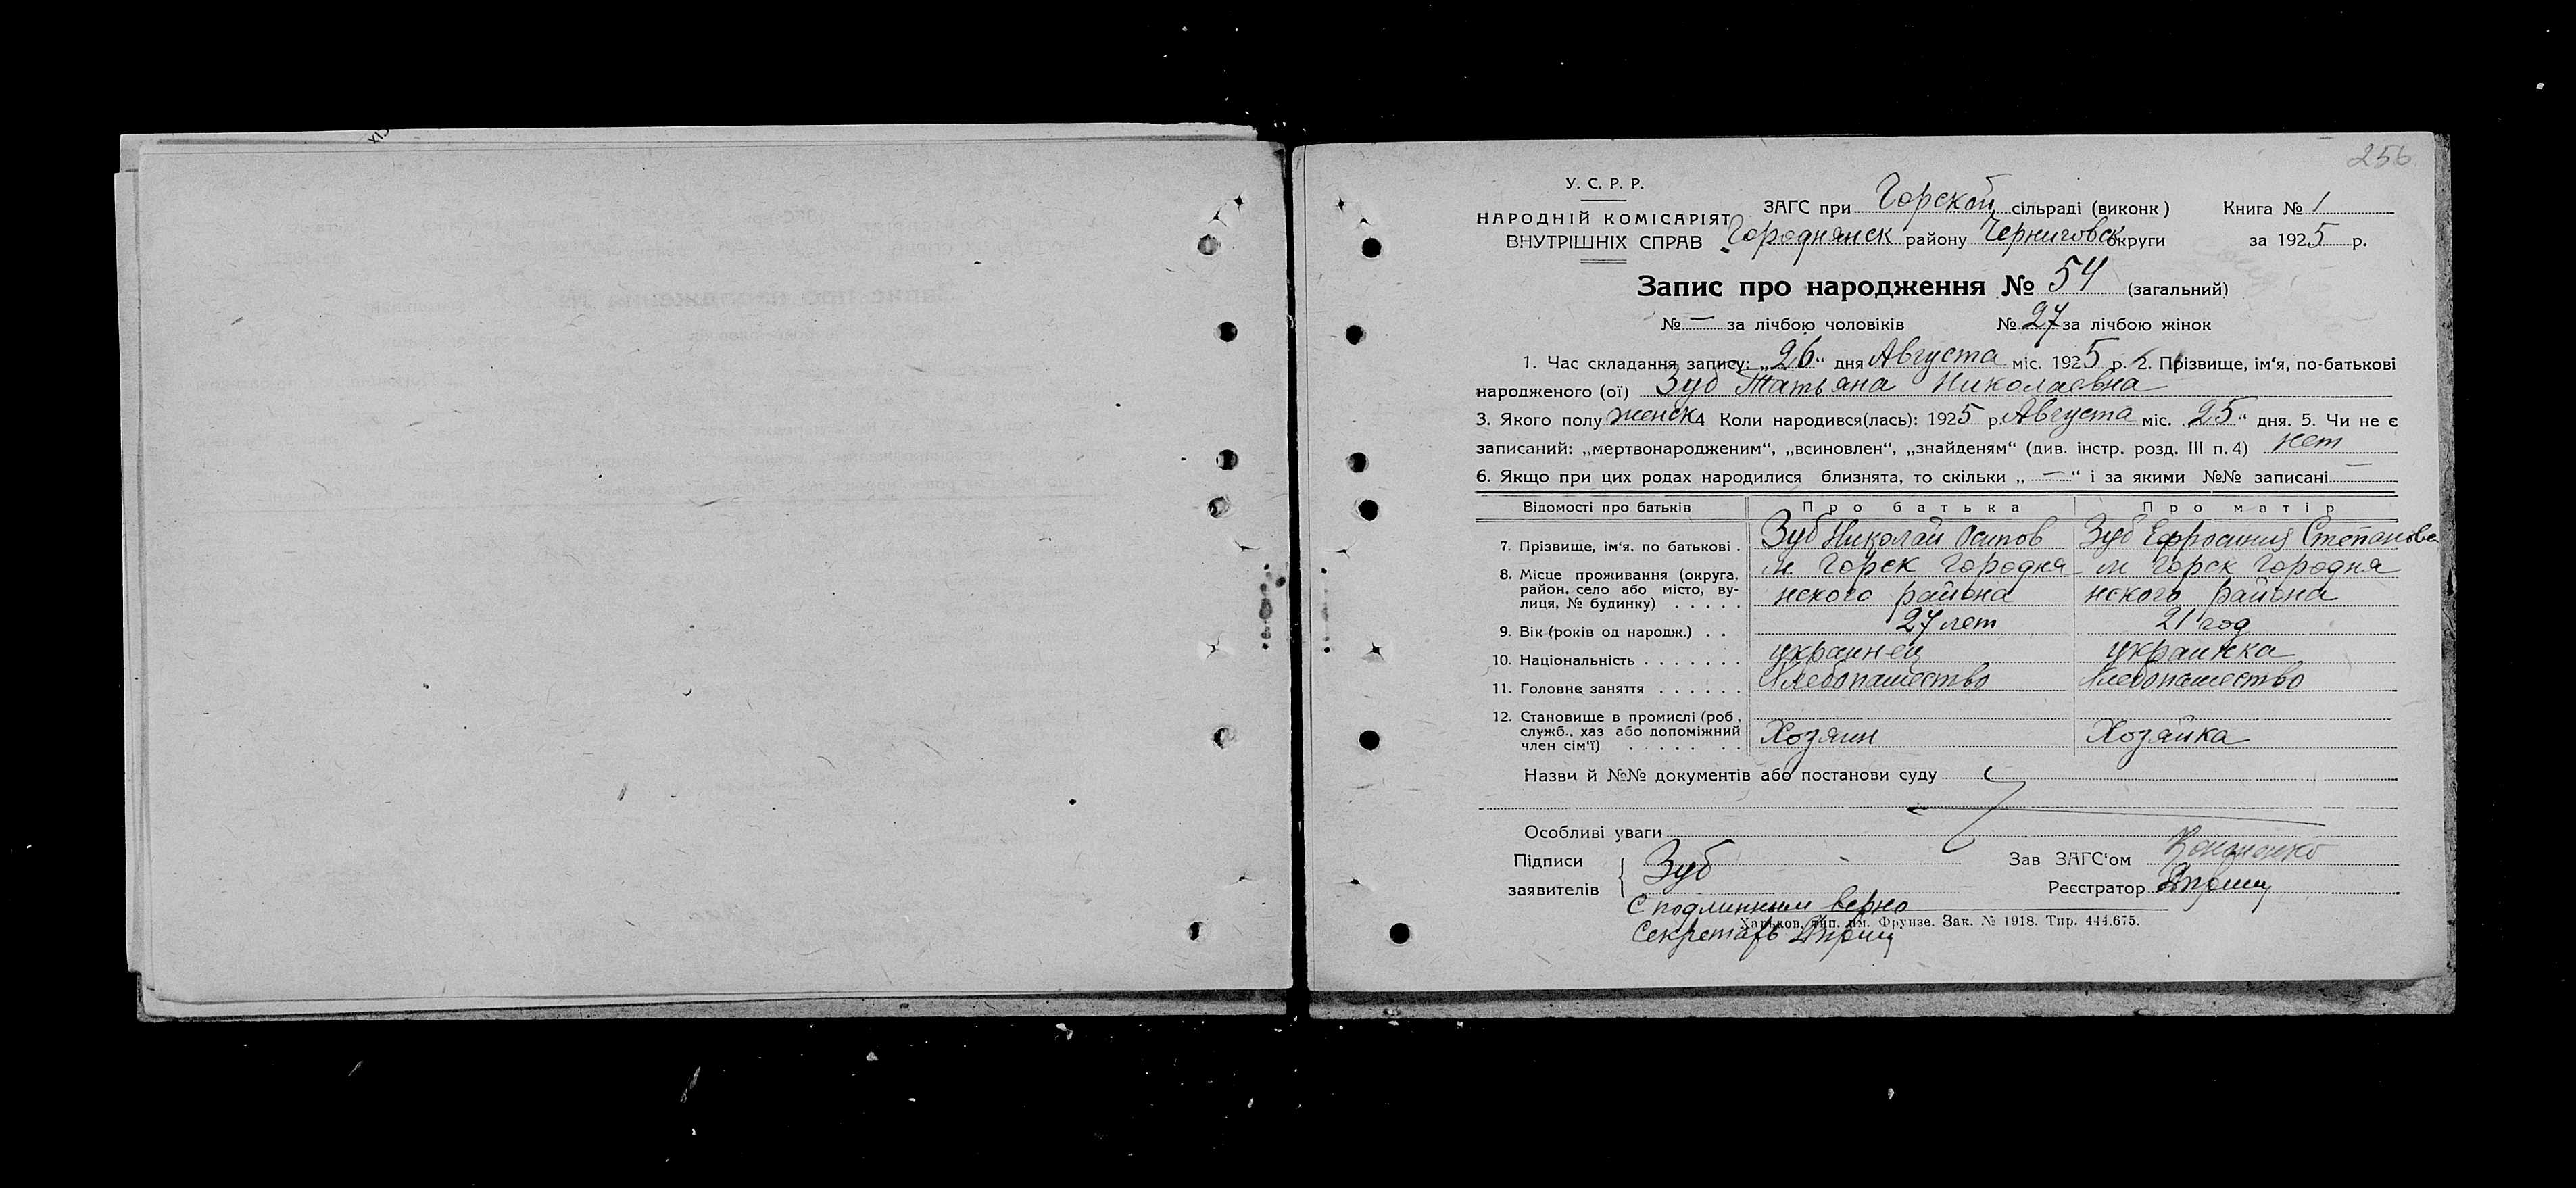 256
У. С. Р. Р.
НАРОДНІЙ КОМІСАРІЯТ
ВНУТРІШНІХ СПРАВ
ЗАГС при Горской сільраді (виконк)
Книга № 1
Городнянск району Черниговск округи
за 1925 р.
Запис про народження № 54 (загальний)
№ — за лічбою чоловіків № 27 за лічбою жінок
1. Час складання запису: „26“ дня Августа міс. 1925 р. 2. Прізвище, ім‘я, по-батькові
народженого (ої) Зуб Татьяна Николаевна
3. Якого полу женск 4 Коли народився(лась): 1925 р. Августа міс. „25“ дня. 5. Чи не є
записаний: „мертвонародженим“, „всиновлен“, „знайденям“ (див. інстр. розд. III п. 4) нет
6. Якщо при цих родах народилися близнята, то скільки „—“ і за якими №№ записані —
Відомості про батьків Про батька Про матір
7. Прізвище, ім‘я. по батькові . Зуб Николай Осипов Зуб Ефросиния Степанова
8. Місце проживання (округа, район. село або місто, вулиця, № будинку) . . . . . м. Горск Городня м Горск Городня
нского района нского района
9. Вік (років од народж.) . . 27 лет 21 год
10. Національність . . . . . . . украинец украинка
11. Головне заняття . . . . . . Хлебопашество Хлебопашество
12. Становище в промислі (роб., служб.. хаз або допоміжний член сім‘ї) . . . . . . . . Хозяин Хозяйка
Назви й №№ документів або постанови суду
Особливі уваги
Підписи
заявителів
Зуб
Зав ЗАГС‘ом
Реєстратор
С подлинным верно
Харьков, тип. им. Фрунзе. Зак. № 1918. Тир. 444.675.
Секретарь